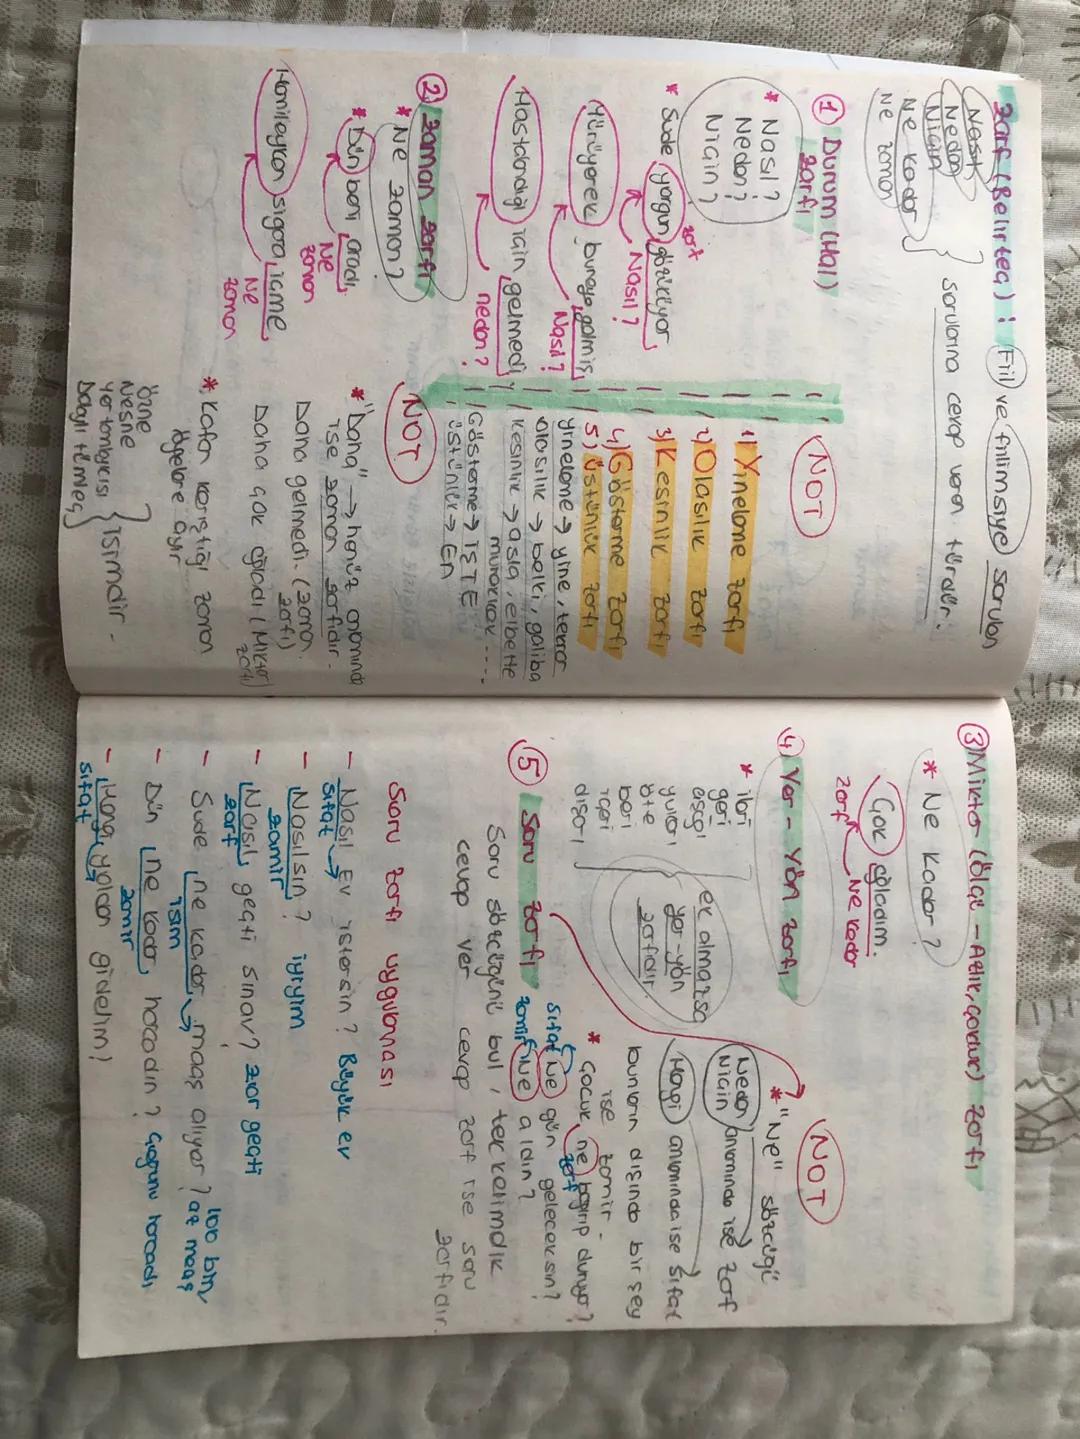 Zarf (Belirteç) : Fiil ve fiilimsiye sorulan
Nasıl
Neden
Niçin
Ne kadar
Ne zaman
sorularına cevap veren türdür.
① Durum (Hal)
zarfı
* Nasıl ?
Neden ?
Niçin ?
* Sude yorgun gözüküyor
zarf
Nasıl ?
Yürüyerek buraya gelmiş
Nasıl ?
Hastalandığı için gelmedi
neden ?
NOT
1) Yineleme zarfı
2) Olasılık zarfı
3) Kesinlik zarfı
4) Gösterme zarfı
5) Üstünlük zarfı
yineleme → yine, tekrar
olasılık → belki, galiba
kesinlik → asla, elbette
muhakkak ....
Gösterme → İŞTE
üstünlük → EN
② Zaman zarfı
* Ne zaman ?
* Dün beni aradı.
Ne
zaman
Hamileyken sigara içme
Ne
zaman
NOT
* "Daha" → henüz anlamında
ise zaman zarfıdır.
Daha gelmedi. (zaman
zarfı)
Daha çok ağladı (Miktar
zarfı)
* Kafan karıştığı zaman
ögelere ayır
Özne
Nesne
Yer tamlayıcısı
Dolaylı tümleç
İsimdir.
③ Miktar (ölçü - Azlık, çokluk) zarfı
* Ne Kadar ?
Çok ağladım.
zarf
Ne kadar
④ Yer - Yön zarfı
* ileri
geri
aşağı
yukarı
öte
beri
içeri
dışarı
ek almazsa
yer-yön
zarfıdır.
NOT
* "Ne" sözcüğü
Neden
Niçin
anlamında ise zarf
Hangi anlamında ise sıfat
bunların dışında bir şey
ise zamir.
* Çocuk ne bağırıp duruyor ?
zarf
sıfat Ne gün geleceksin ?
zamir Ne aldın ?
⑤ Soru zarfı
Soru sözcüğünü bul, tek kelimelik
cevap ver cevap zarf ise soru
zarfıdır.
Soru zarfı uygulaması
- Nasıl Ev istersin ? Büyük ev
sıfat
- Nasılsın ? iyiyim
zamir
- Nasıl geçti sınav ? zor geçti
zarf
- Sude ne kadar maaş alıyor ? 100 bin
az maaş
isim
- Dün ne kadar harcadın ? Çoğunu harcadı
zamir
- Hangi yoldan gidelim ?
sıfat